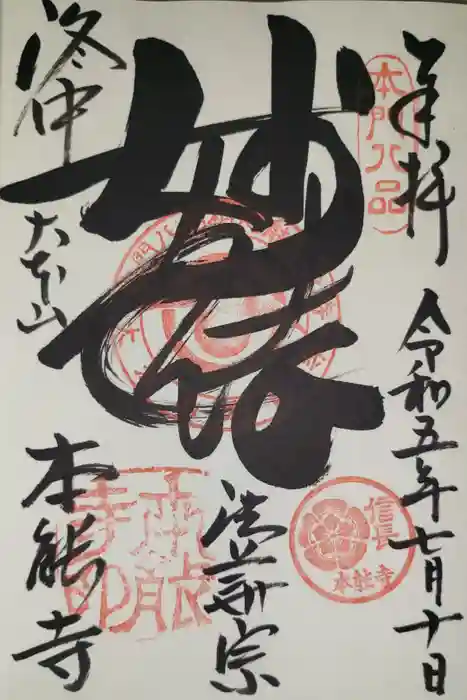 奉拝
本門八品
令和五年七月十日
信長
本能寺
妙
法華宗
洛中
大本山
本能寺